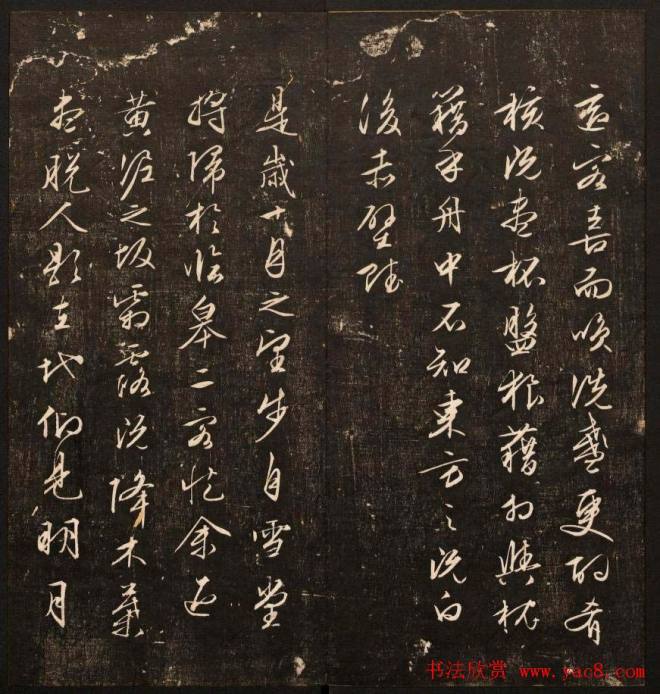 適客喜而笑洗盞更酌肴
核既盡杯盤狼藉相與枕
藉乎舟中不知東方之既白
後赤壁賦
是歲十月之望步自雪堂
將歸於臨皋二客從余過
黃泥之坂霜露既降木葉
盡脫人影在地仰見明月
书法欣赏 www.yac8.com